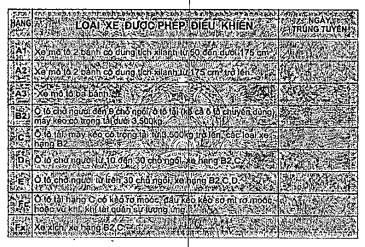 HẠNG LOẠI XE ĐƯỢC PHÉP ĐIỀU KHIỂN NGÀY TRÚNG TUYỂN
A1 Xe mô tô 2 bánh có dung tích xilanh từ 50 đến dưới 175 cm³
A2 Xe mô tô 2 bánh có dung tích xilanh từ 175 cm³ trở lên
A3 Xe mô tô ba bánh
B2 Ô tô chở người đến 9 chỗ ngồi, ô tô tải (kể cả ô tô chuyên dùng)
máy kéo có trọng tải dưới 3.500kg
C Ô tô tải, máy kéo có trọng tải từ 3.500kg trở lên, các loại xe
hạng B2
D Ô tô chở người từ 10 đến 30 chỗ ngồi, xe hạng B2,C
E Ô tô chở người từ trên 30 chỗ ngồi, xe hạng B2,C,D
Ô tô tải hạng C có kéo rơ moóc, đầu kéo kéo sơ mi rơ moóc
hoặc vũ khí, khí tài quân sự tương ứng
Fx Xe xích, xe hạng B2,C